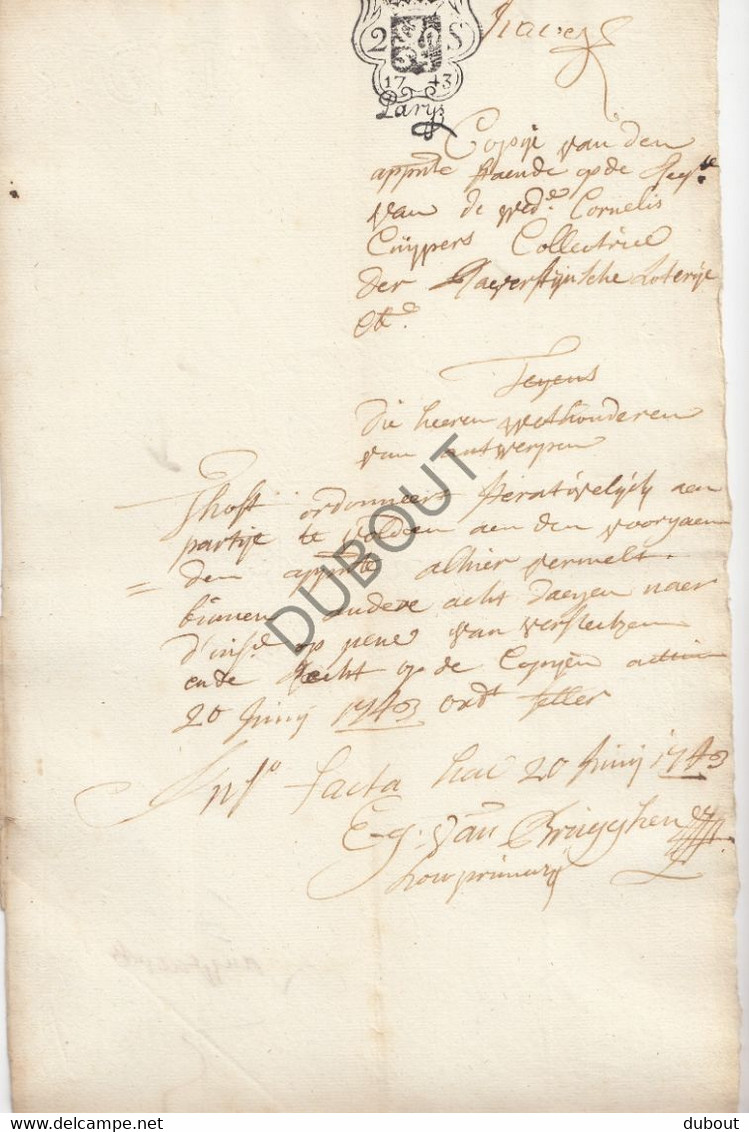 2 S
17 43
Parijs
Copije van den
appnte staende op de Reqte
van de wede Cornelis
Cuijpers Collectrice
der Loterije
etc
Tegens
die heeren wethouderen
van antwerpen
Thoff ordonneert iterativelijck aen
partije te voldoen aen den voorgaen
den appnte alhier vermelt
binnen andere acht daegen naer
d'insie op pene van versteken
ende Recht op de Copijen
20 Junij 1743 ordt
Insio facta hac 20 Junij 1743
Eg: Van Brugghen
DUBOUT
www.delcampe.net
dubout